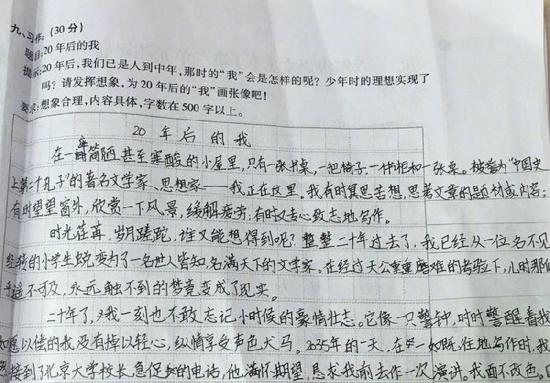 九、习作:(30分)
题目:20年后的我
提示:20年后,我们已是人到中年,那时的“我”会是怎样的呢?少年时的理想实现了
吗?请发挥想象,为20年后的“我”画张像吧!
要求:想象合理,内容具体,字数在500字以上。
20年后的我
在一座简陋甚至寒酸的小屋里,只有一张书桌,一把椅子,一个书柜和一张床。被誉为“中国史
上第二个孔子”的著名文学家、思想家——我正在这里。我有时冥思苦想,思考文章的题材或内容;
有时望望窗外,欣赏一下风景,缓解疲劳;有时又专心致志地写作。
时光荏苒,岁月蹉跎,谁又能想得到呢?整整二十年过去了,我已经从一位名不见
经传的小学生蜕变为了一名世人皆知,名满天下的文学家。在经过天公重重磨难的考验下,儿时那
遥不可及,永远触不到的梦竟变成了现实。
二十年了,我一刻也不敢忘记小时候的豪情壮志。它像一只警钟,时时警醒着我
如愿以偿的我没有掉以轻心,纵情享受声色犬马。2035年的一天,在我一如既往地写作时,我
接到了北京大学校长急促的电话,他满怀期望,恳求我前去作一次演讲,我面不改色。